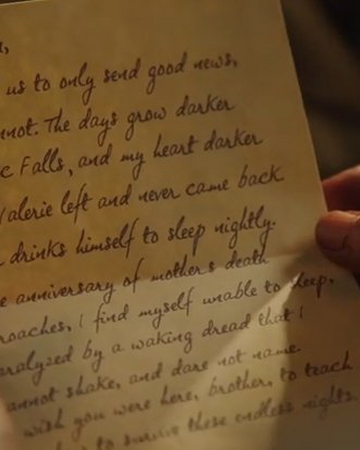 us to only send good news,
nnot. The days grow darker
c Falls, and my heart darker
Valerie left and never came back
drinks himself to sleep nightly.
e anniversary of mother's death
roaches, I find myself unable to sleep.
aralyzed by a waking dread that I
annot shake, and dare not name.
wish you were here, brother, to teach
to survive these endless nights.